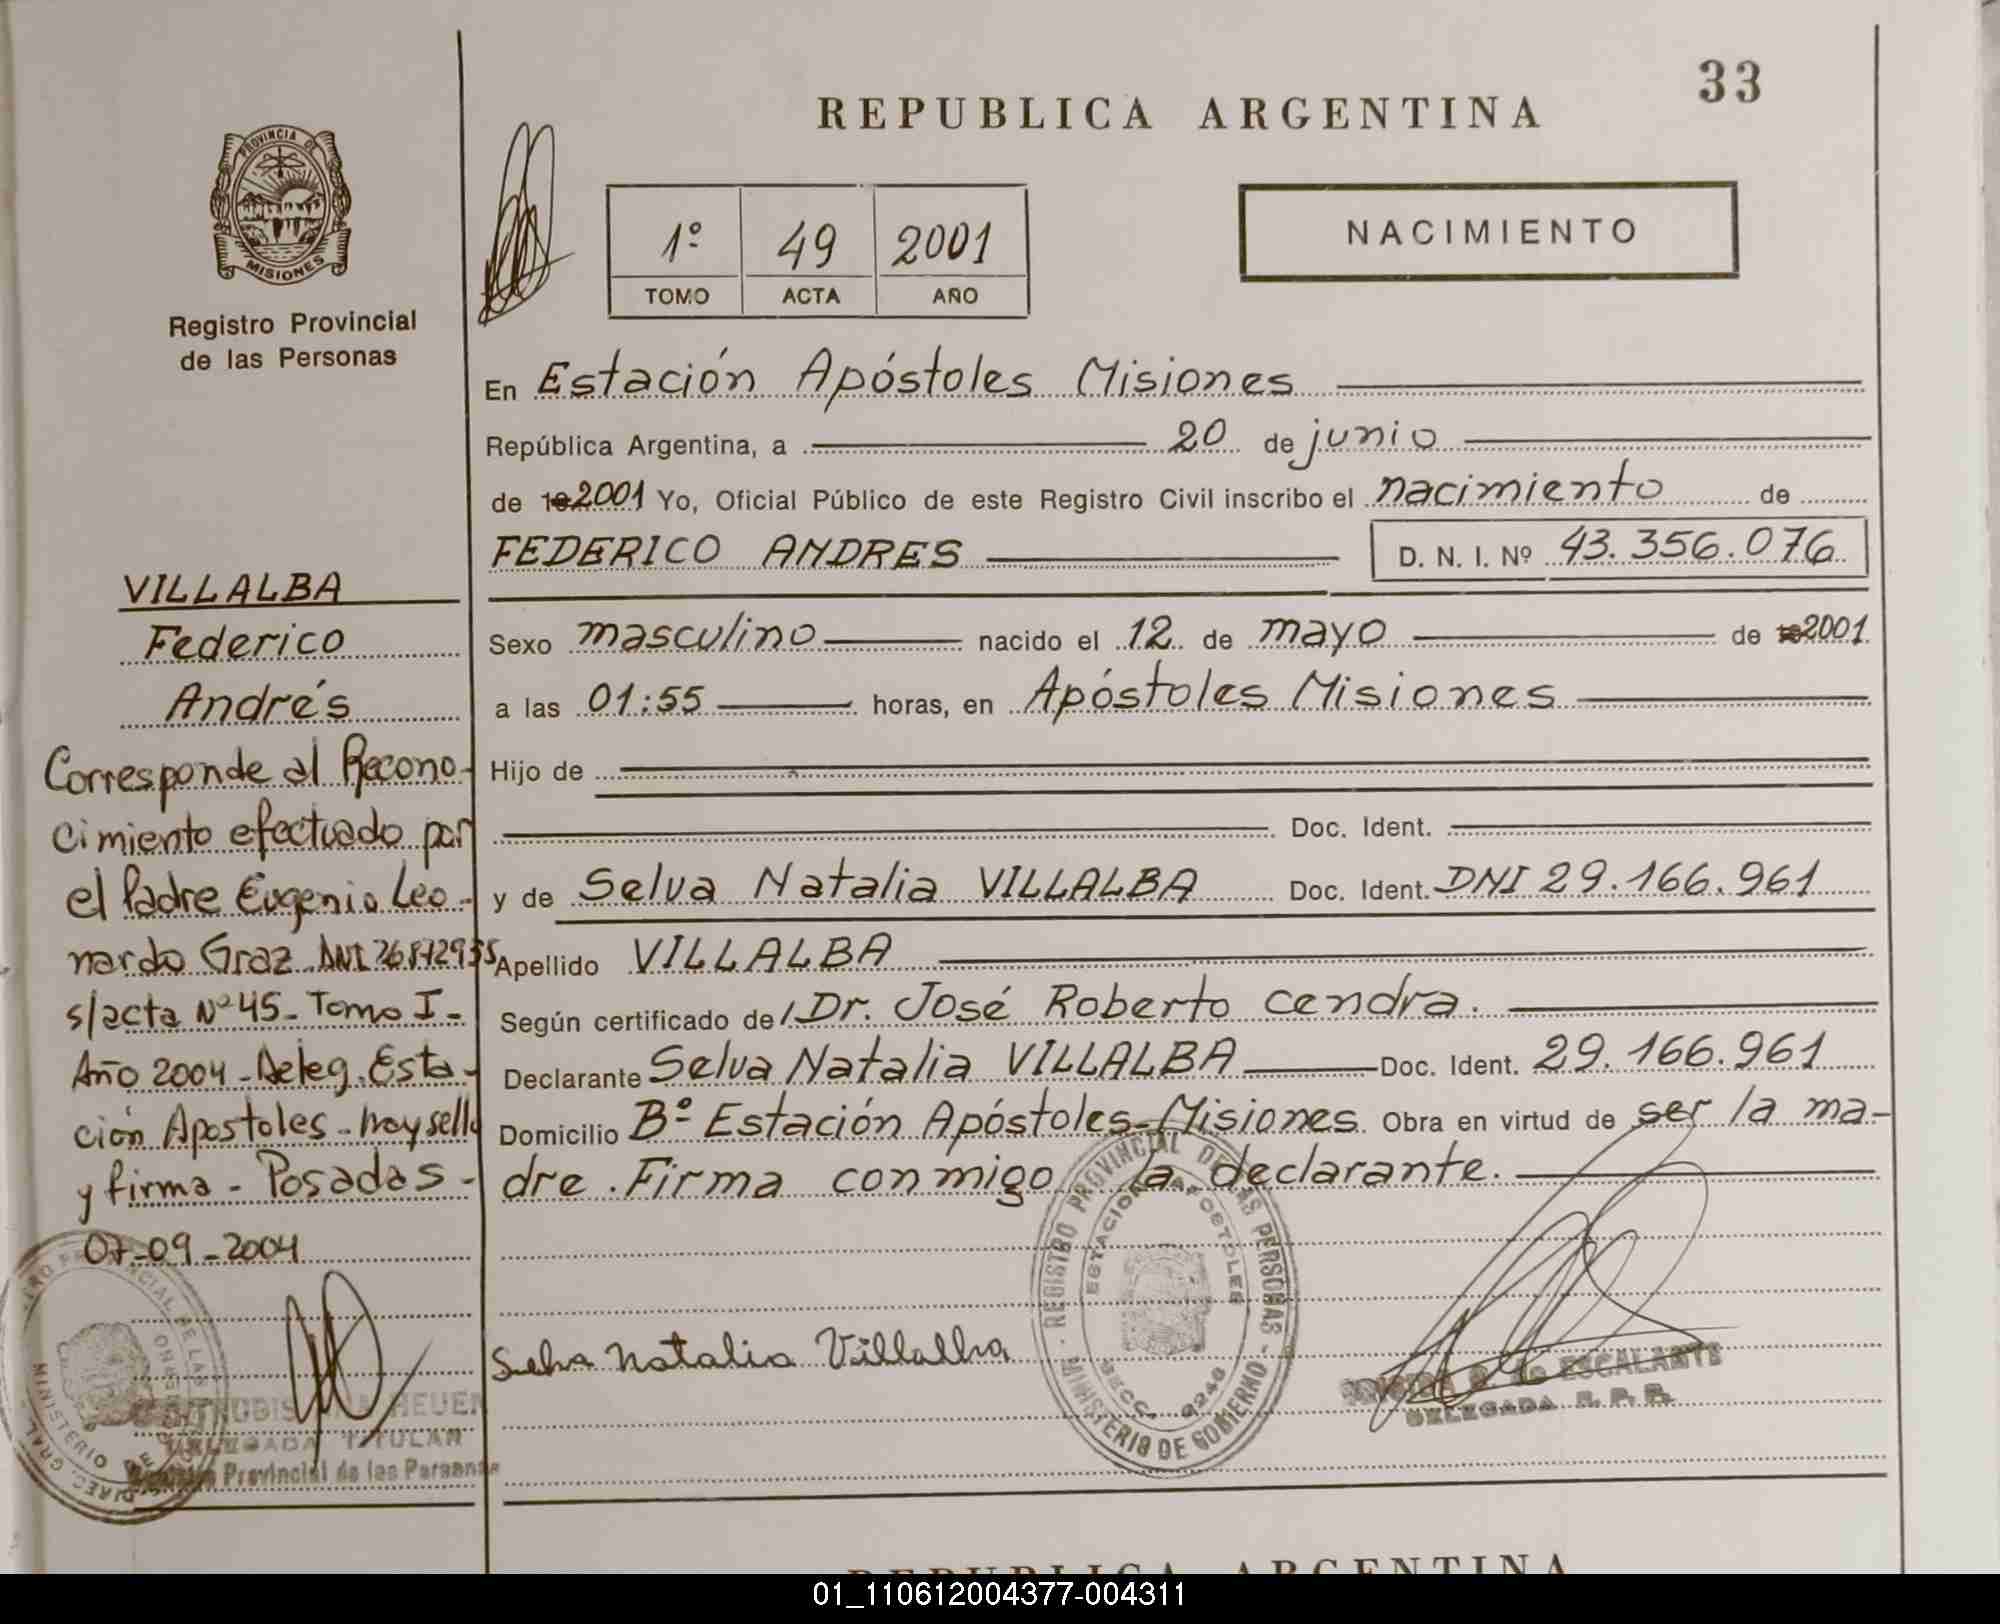 33
REPUBLICA ARGENTINA
PROVINCIA DE
MISIONES
Registro Provincial
de las Personas
1º 49 2001
TOMO ACTA AÑO
NACIMIENTO
En Estación Apóstoles Misiones
República Argentina, a 20 de junio
de 19 2001 Yo, Oficial Público de este Registro Civil inscribo el nacimiento de
FEDERICO ANDRES D. N. I. Nº 43.356.076
Sexo masculino nacido el 12 de mayo de 19 2001
a las 01:55 horas, en Apóstoles Misiones
Hijo de
Doc. Ident.
y de Selva Natalia VILLALBA Doc. Ident. DNI 29.166.961
Apellido VILLALBA
Según certificado de/ Dr. José Roberto Cendra.
Declarante Selva Natalia VILLALBA Doc. Ident. 29.166.961
Domicilio Bº Estación Apóstoles-Misiones. Obra en virtud de ser la ma-
dre. Firma conmigo la declarante.
VILLALBA
Federico
Andrés
Corresponde al Recono-
cimiento efectuado por
el Padre Eugenio Leo-
nardo Graz DNI
s/acta Nº 45 - Tomo I -
Año 2004 - Deleg. Esta-
ción Apostoles - hay sello
y firma - Posadas -
07-09-2004
Selva Natalia Villalba
REGISTRO PROVINCIAL DE LAS PERSONAS - MINISTERIO DE GOBIERNO -
ESTACION APOSTOLES
SECC.
DE ESCALANTE
DELEGADA R. P. P.
DELEGADA TITULAR
Registro Provincial de las Personas
REPUBLICA ARGENTINA
01_110612004377-004311